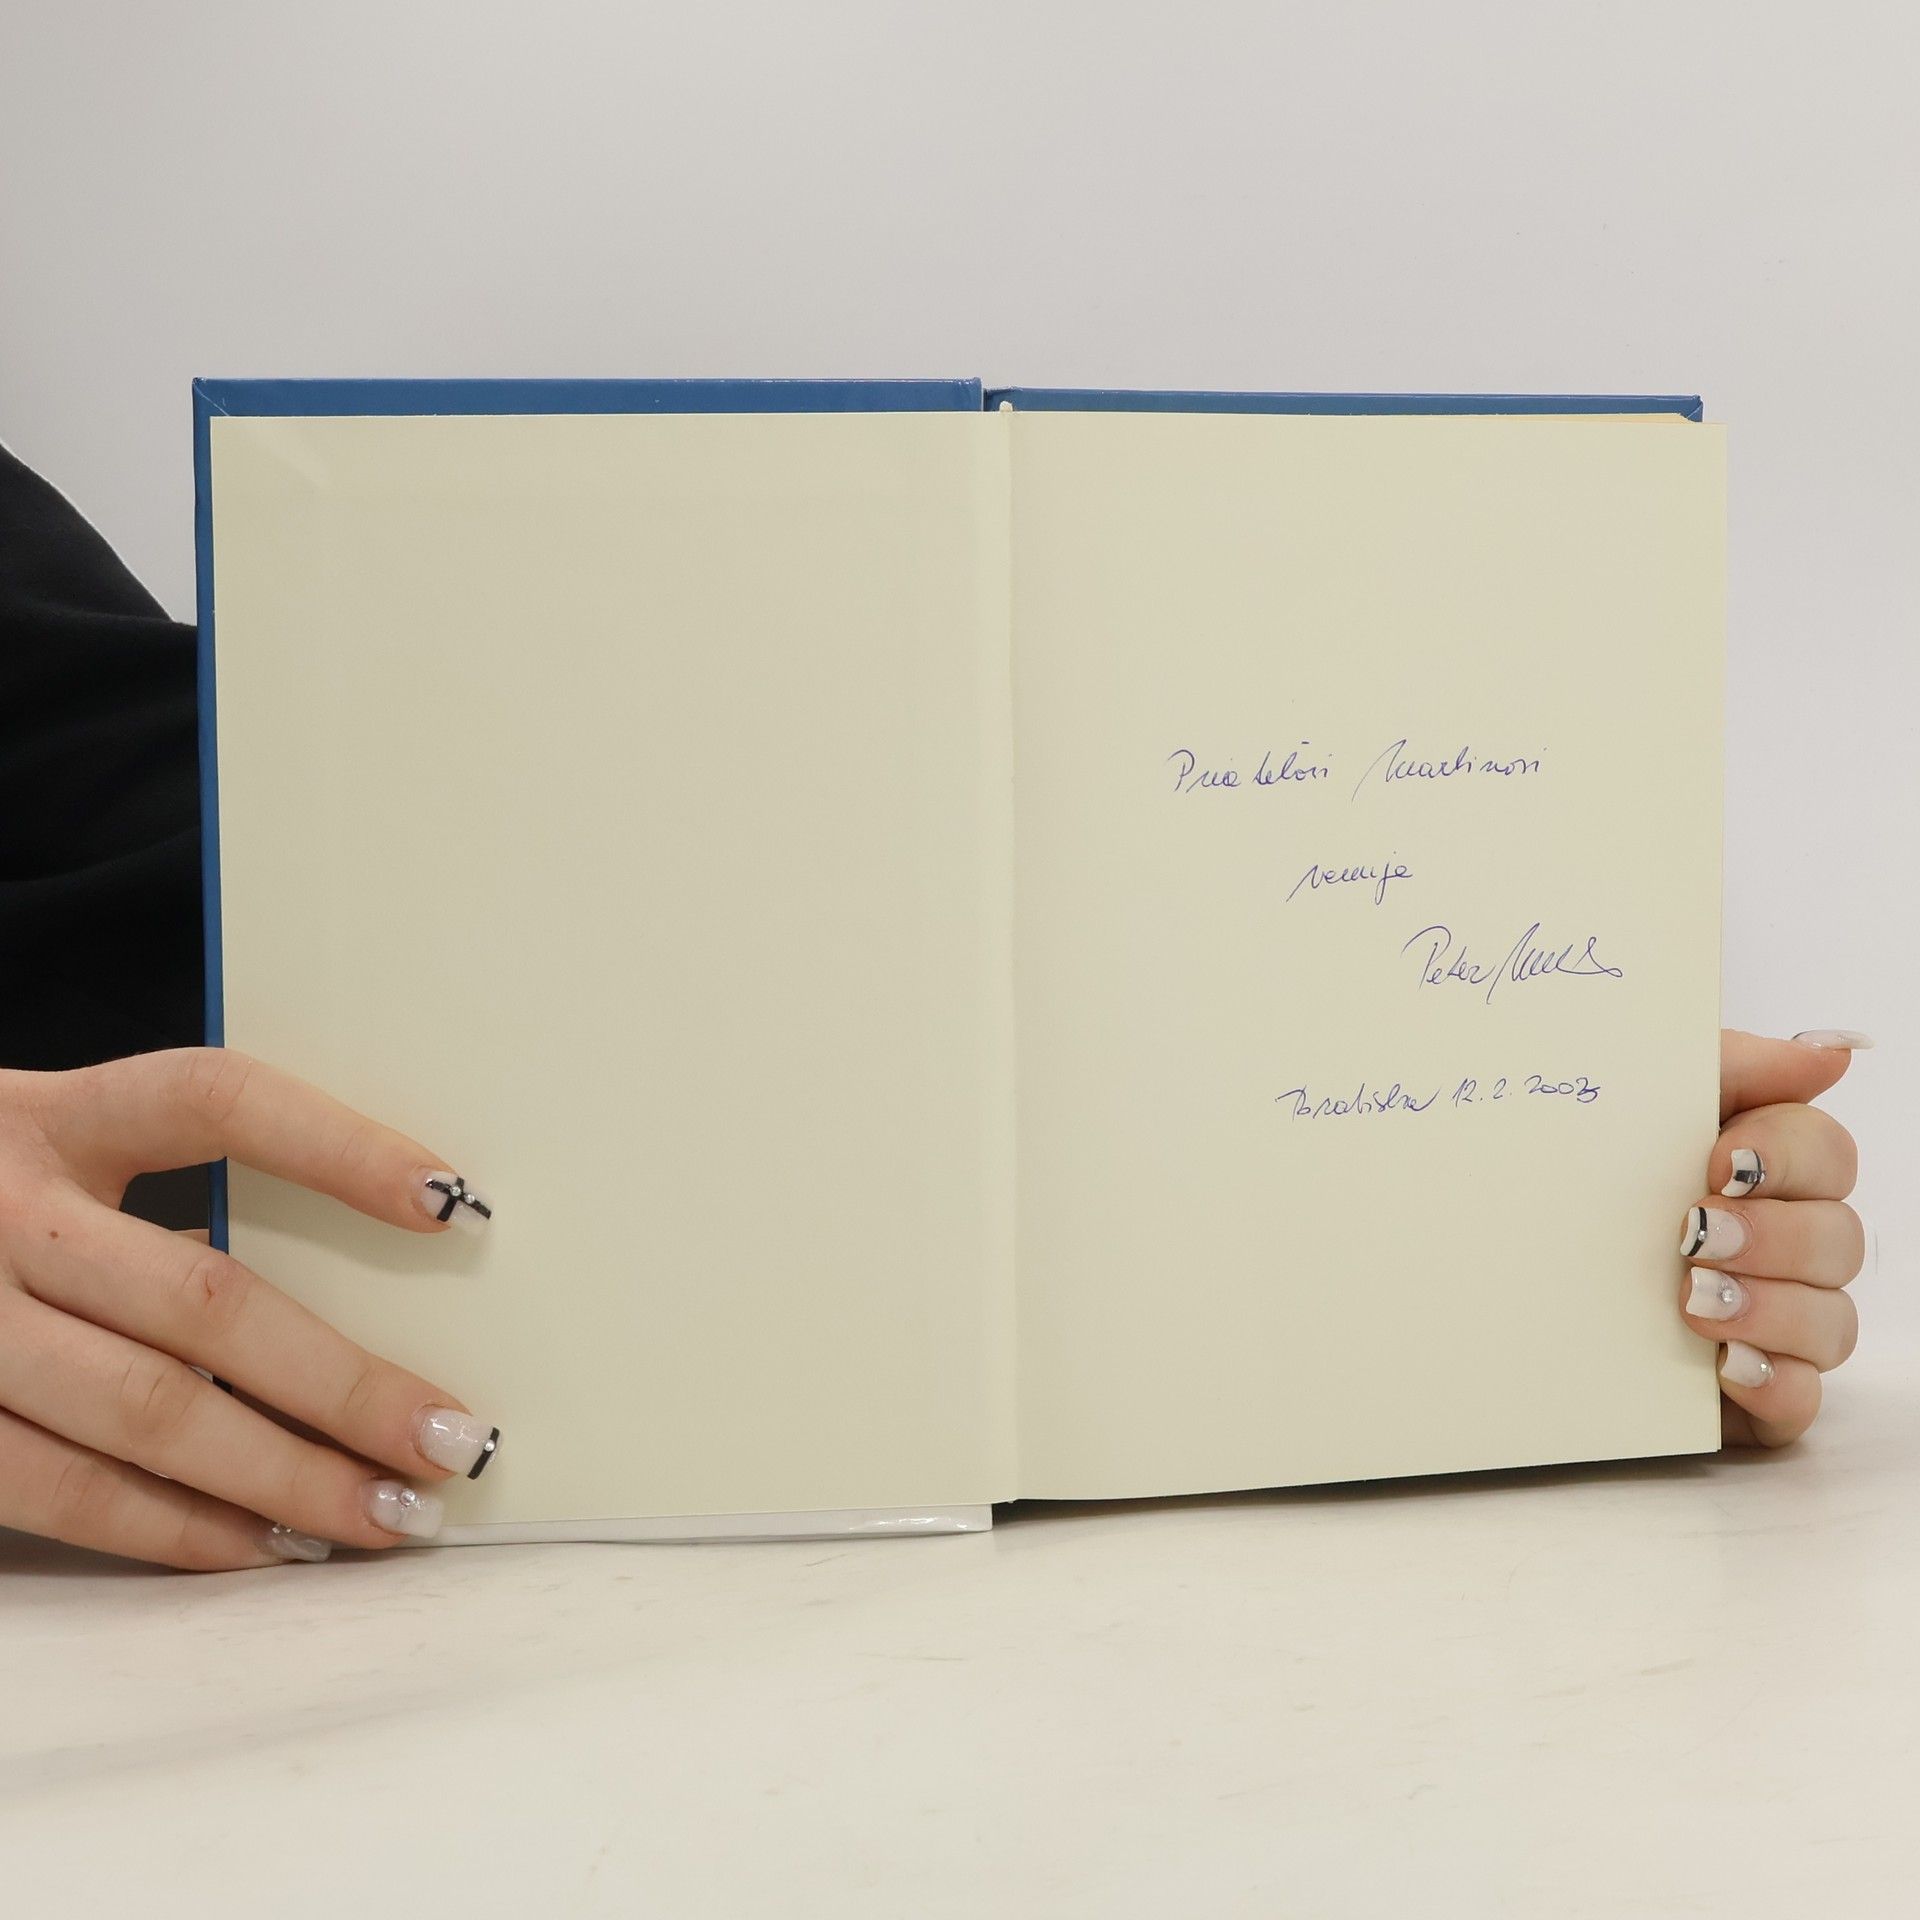 Priateľovi Martinovi
venuje
Peter
Bratislava 12. 2. 2003